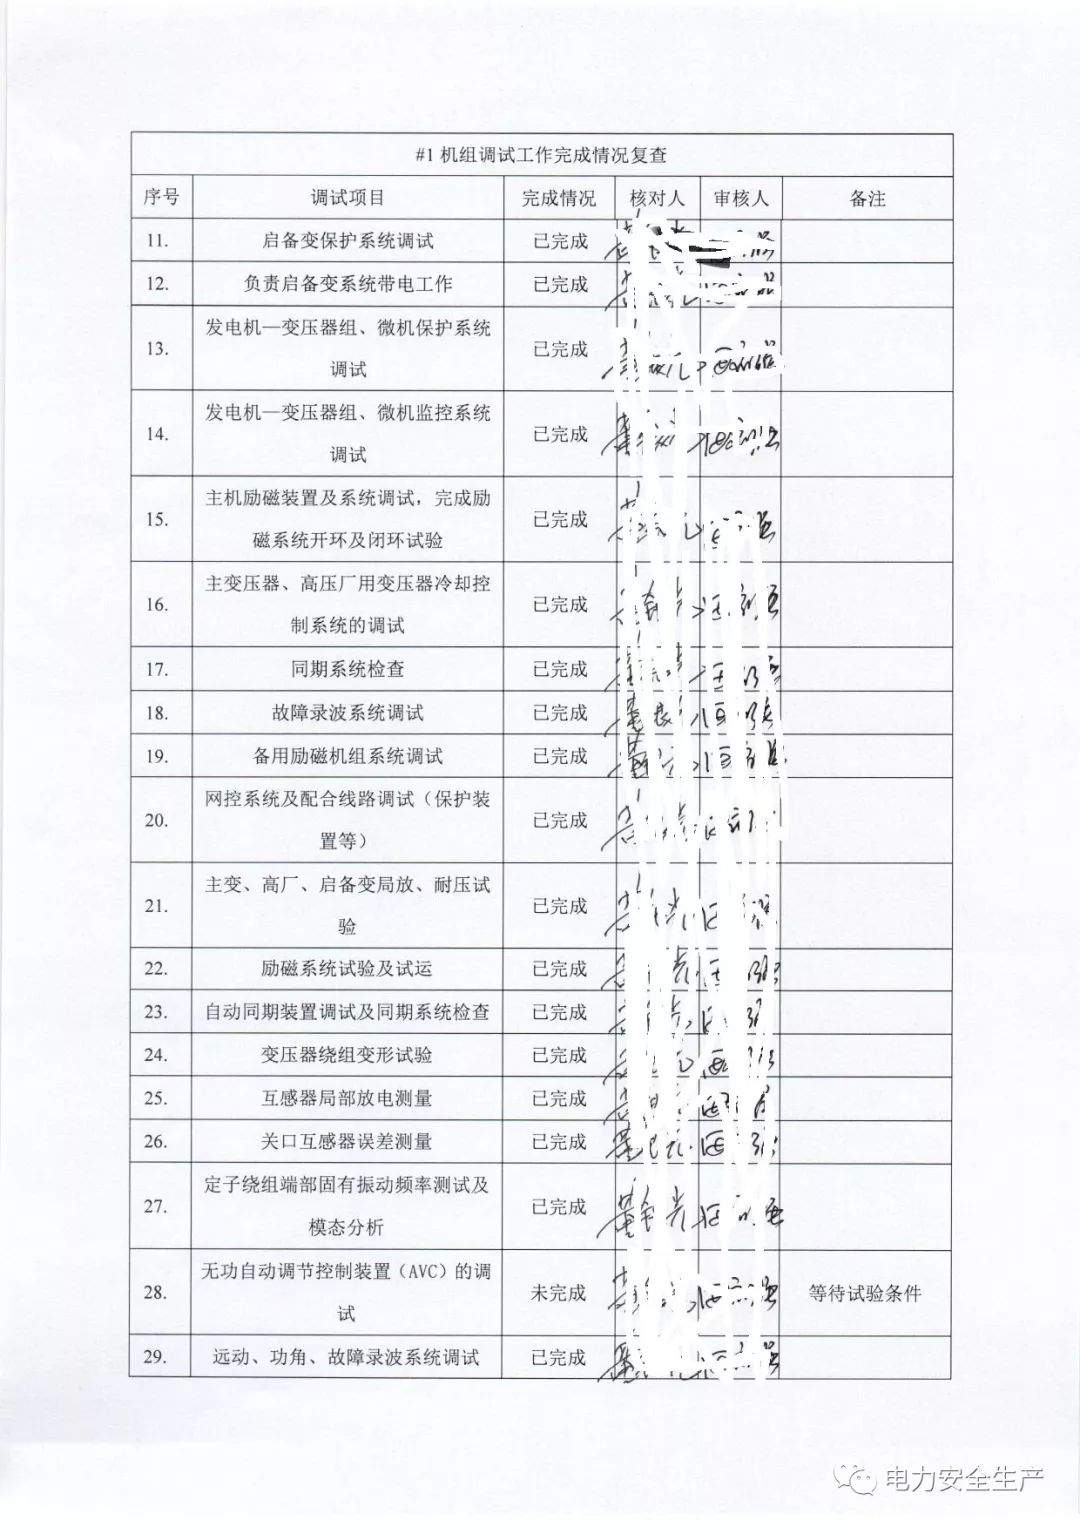 #1 机组调试工作完成情况复查
序号 调试项目 完成情况 核对人 审核人 备注
11. 启备变保护系统调试 已完成
12. 负责启备变系统带电工作 已完成
13. 发电机—变压器组、微机保护系统
调试 已完成
14. 发电机—变压器组、微机监控系统
调试 已完成
15. 主机励磁装置及系统调试，完成励
磁系统开环及闭环试验 已完成
16. 主变压器、高压厂用变压器冷却控
制系统的调试 已完成
17. 同期系统检查 已完成
18. 故障录波系统调试 已完成
19. 备用励磁机组系统调试 已完成
20. 网控系统及配合线路调试（保护装
置等） 已完成
21. 主变、高厂、启备变局放、耐压试
验 已完成
22. 励磁系统试验及试运 已完成
23. 自动同期装置调试及同期系统检查 已完成
24. 变压器绕组变形试验 已完成
25. 互感器局部放电测量 已完成
26. 关口互感器误差测量 已完成
27. 定子绕组端部固有振动频率测试及
模态分析 已完成
28. 无功自动调节控制装置（AVC）的调
试 未完成 等待试验条件
29. 远动、功角、故障录波系统调试 已完成
电力安全生产